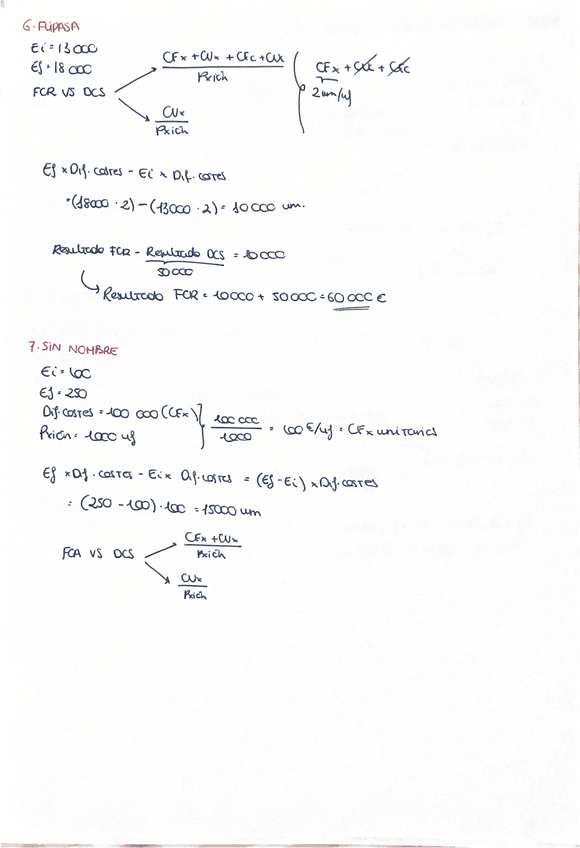 6. FLIPASA
Ei = 13000
Ef = 18000
FCR VS DCS
CFx + CVx + CFc + CVc
Prxión
CVx
Prxión
CFx + CVc + CFc
2um/uf
Ef x Dif. costes - Ei x Dif. costes
= (18000 · 2) - (13000 · 2) = 10000 um.
Resultado FCR - Resultado DCS = 10000
50000
Resultado FCR = 10000 + 50000 = 60000 €
7. SIN NOMBRE
Ei = 100
Ef = 250
Dif. costes = 100 000 (CFx)
Prxión = 1000 uf
100 000
1000
= 100 €/uf = CFx unitarios
Ef x Dif. costes - Ei x Dif. costes = (Ef - Ei) x Dif. costes
= (250 - 100) · 100 = 15000 um
FCA VS DCS
CFx + CVx
Prxión
CVx
Prxión